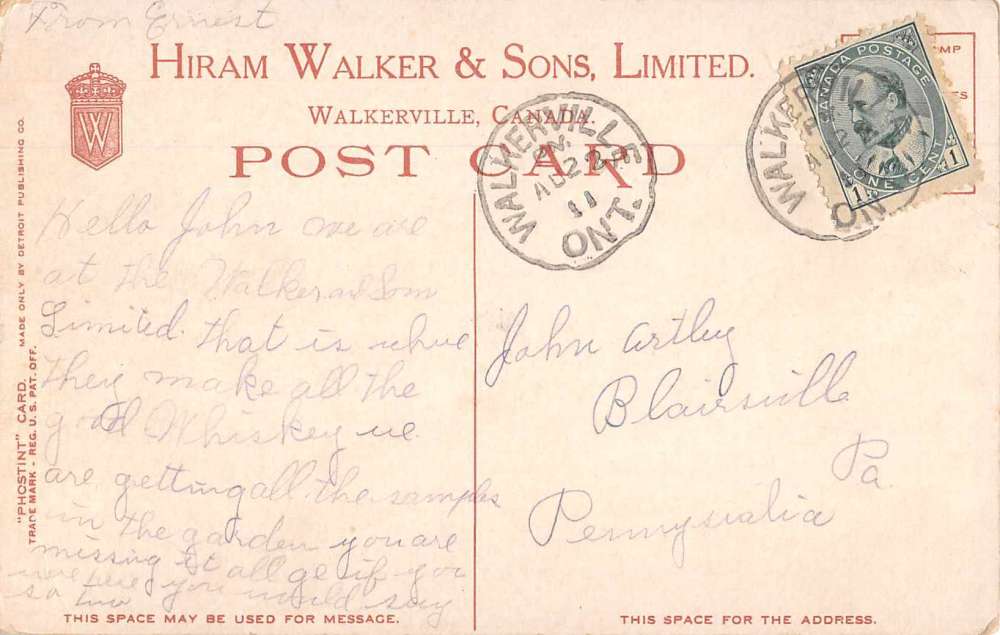 From Ernest
HIRAM WALKER & SONS, LIMITED.
WALKERVILLE, CANADA.
POST CARD
W
WALKERVILLE
AU 22
11
ONT.
WALKER
ON
CANADA POSTAGE
1 ONE CENT 1
MP
TS
Hello John we are
at the Walker and Son
Limited. that is where
they make all the
good Whiskey we
are getting all the samples
in the garden you are
missing it all ge if you
were here you would say
so two
John Artley
Blairsville
Pa.
Pennysialia
"PHOSTINT" CARD. MADE ONLY BY DETROIT PUBLISHING CO.
TRADE MARK - REG. U. S. PAT. OFF.
THIS SPACE MAY BE USED FOR MESSAGE.
THIS SPACE FOR THE ADDRESS.